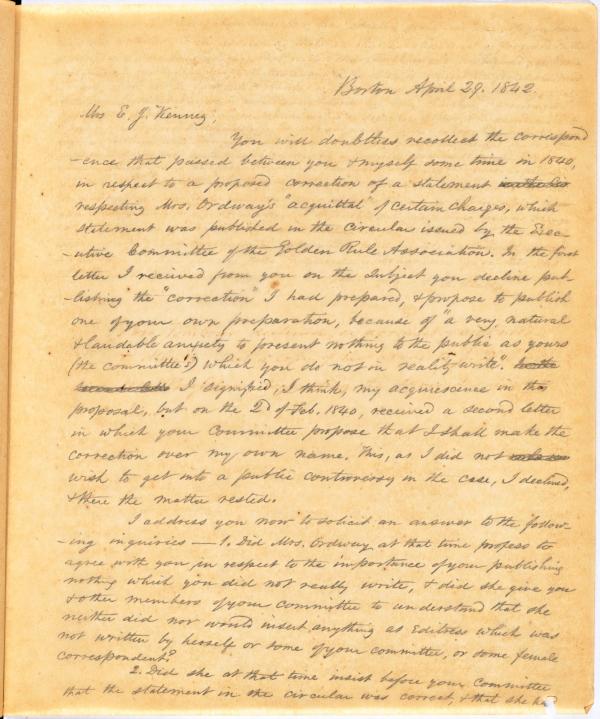 Boston April 29. 1842.
Mrs E. J. Kenney,
You will doubtless recollect the correspond
-ence that passed between you & myself some time in 1840,
in respect to a proposed correction of a statement
respecting Mrs. Ordway's "acquittal" of certain charges, which
statement was published in the circular issued by the Exec-
-utive Committee of the Golden Rule Association. In the first
letter I received from you on the subject you decline pub
-lishing the "correction" I had prepared, & propose to publish
one of your own preparation, because of "a very natural
& laudable anxiety to present nothing to the public as yours
(the committee's) which you do not in reality write". In the
second letter I signified, I think, my acquiescence in the
proposal, but on the 2d of Feb. 1840, received a second letter
in which your Committee propose that I shall make the
correction over my own name. This, as I did not
wish to get into a public controversy in the case, I declined,
& there the matter rested.
I address you now to solicit an answer to the follow-
-ing inquiries — 1. Did Mrs. Ordway at that time profess to
agree with you in respect to the importance of your publishing
nothing which you did not really write, & did she give you
& other members of your committee to understand that she
neither did nor would insert anything as Editress which was
not written by herself or some of your committee, or some female
correspondent?
2. Did she at that time insist before your Committee
that the statement in the circular was correct, & that she had